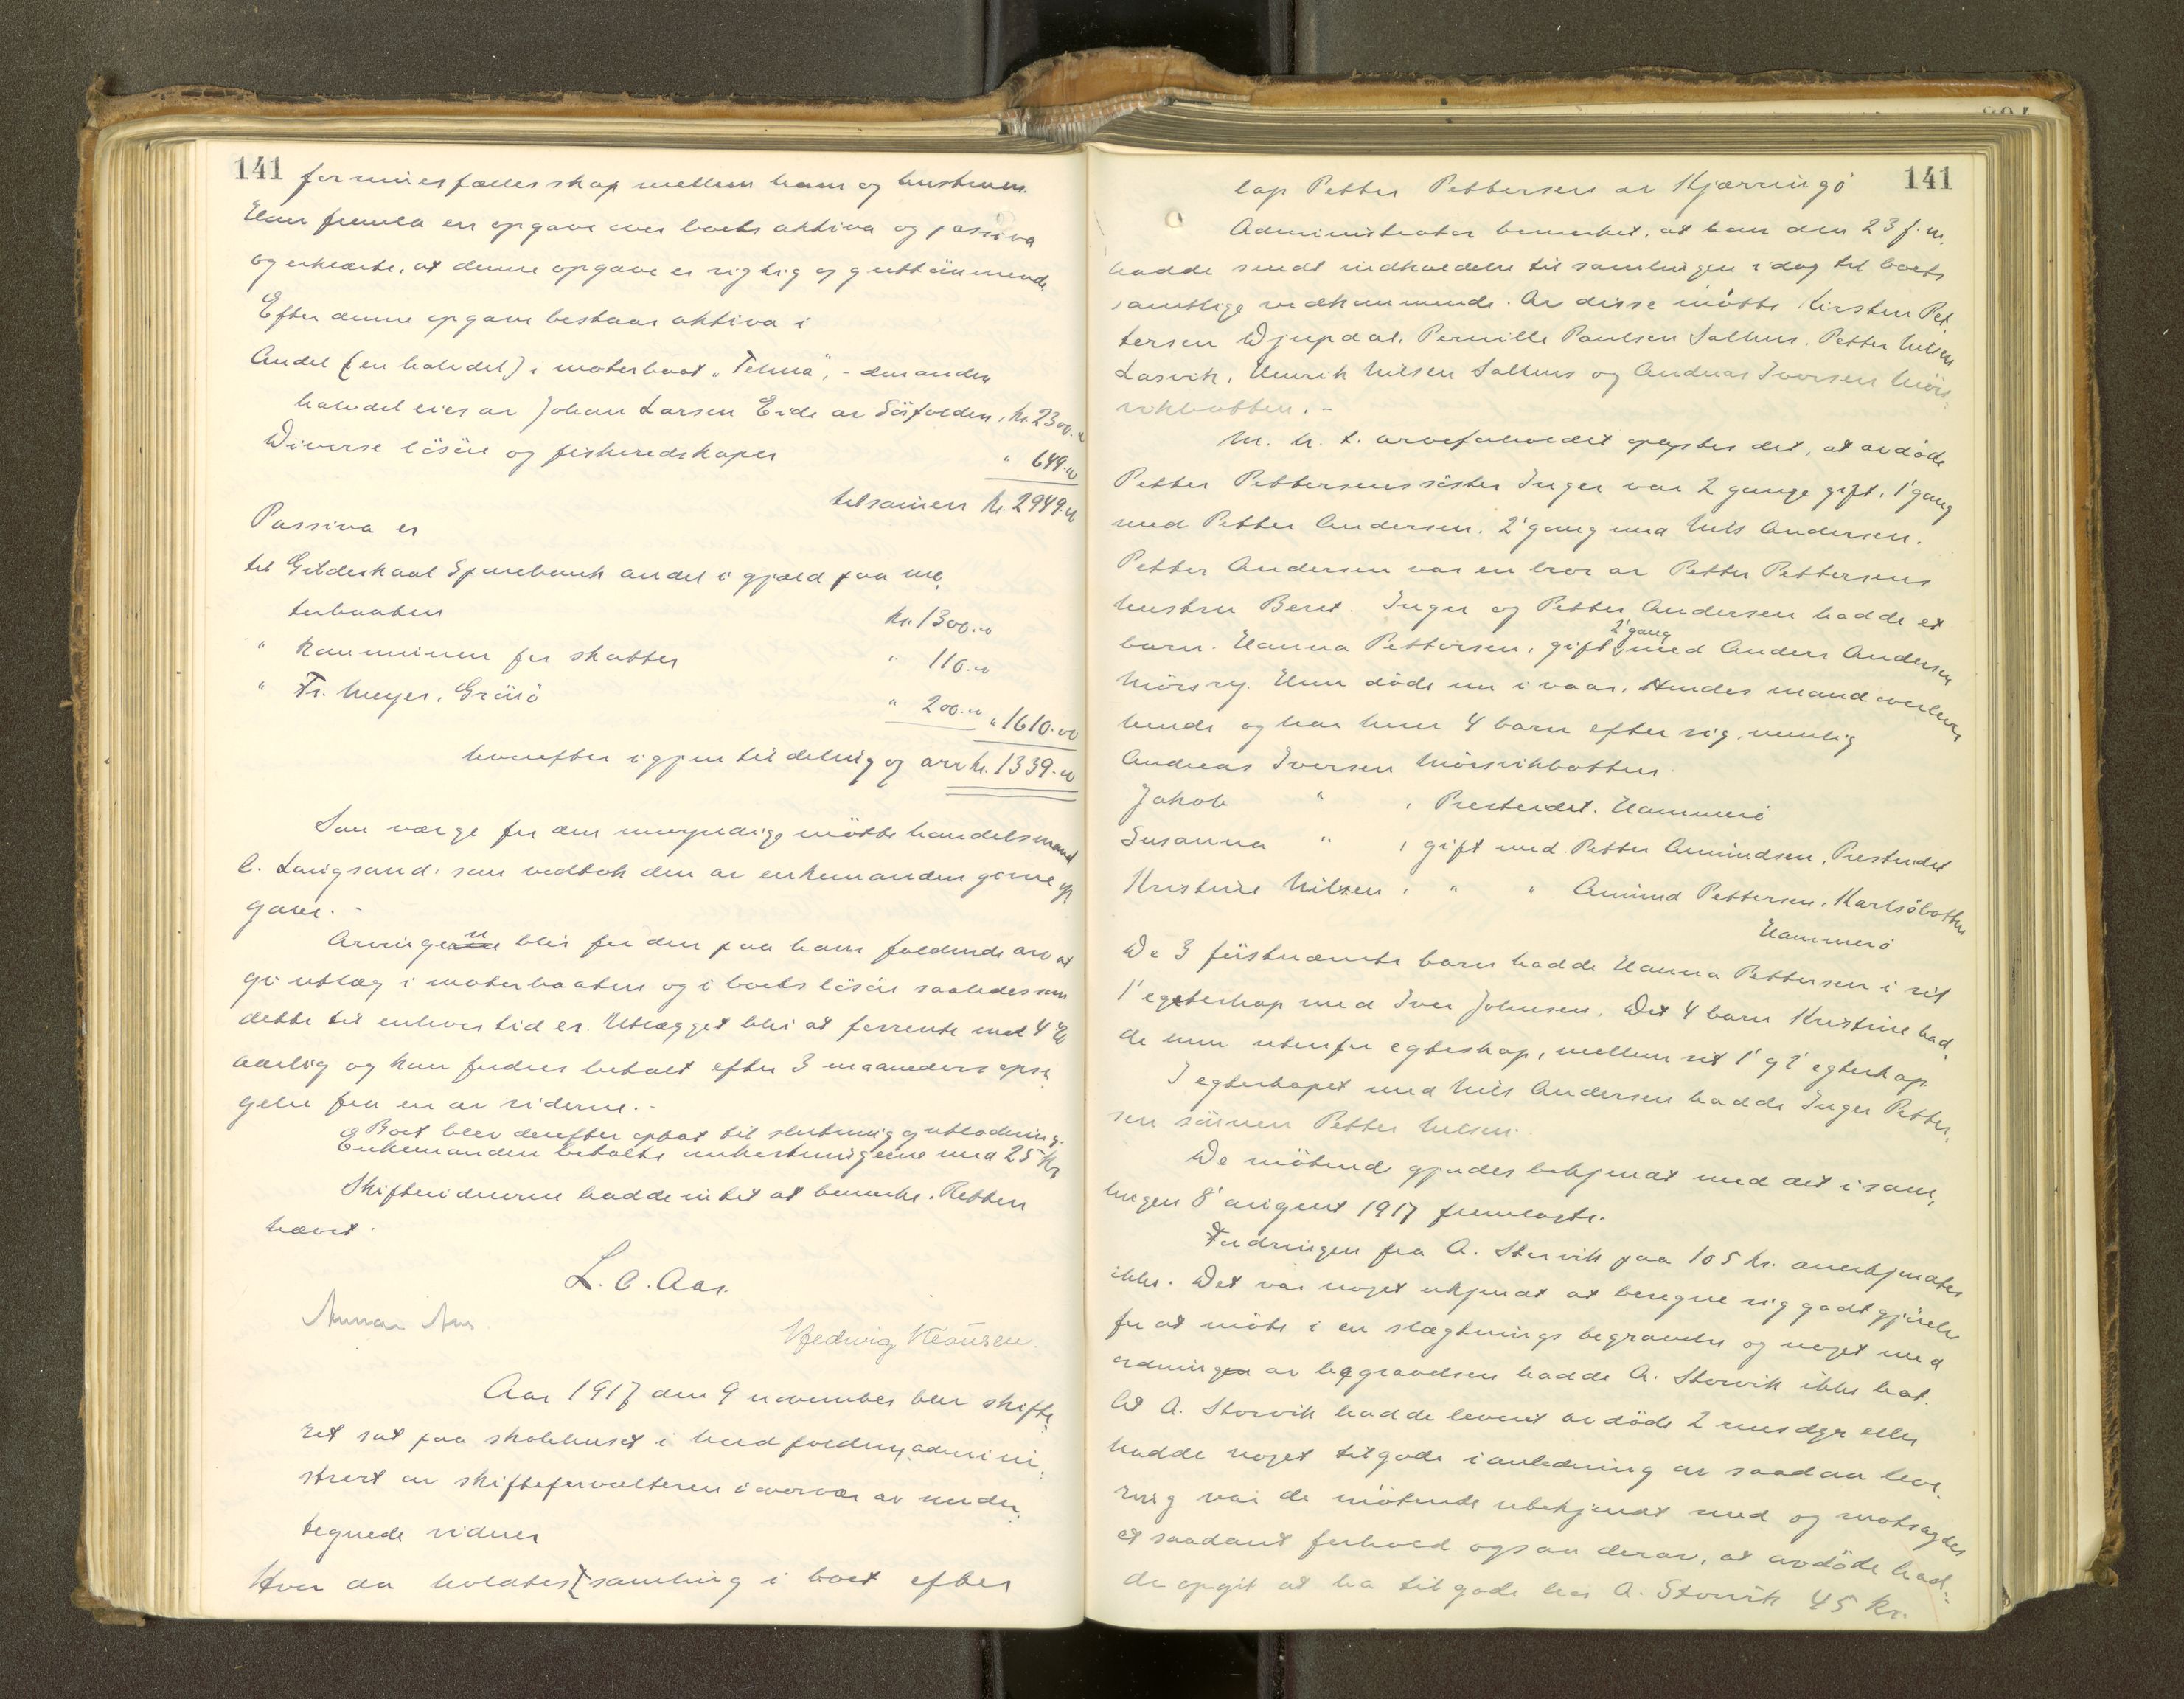 141
formuesfællesskap mellem ham og hustruen.
Han fremla en opgave over boets aktiva og passiva
og erklærte, at denne opgave er rigtig og
Efter denne opgave bestaar aktiva i
Andel (en halvdel) i motorbaat „Telma", - den anden
halvdel eies av Johan Larsen Eide av Sörfolden, kr. 2300.00
Diverse lösöre og fiskeredskaper " 649.00
tilsamen kr. 2949.00
Passiva er
til Gildeskaal Sparebank andel i gjæld paa mo-
torbaaten kr. 1300.00
" Kommunen for skatter " 110.00
" Fr. Meyer, Grönö " 200.00 " 1610.00
hvorefter igjen til deling og arv kr. 1339.00
Som værge for den umyndige mötte handelsmand
C. Langsand, som vedtok den av enkemanden givne op-
gave. -
Arvingen blir for den paa ham faldende arv at
gi utlæg i motorbaaten og i boets lösöre saaledes som
dette til enhver tid er. Utlægget blir at forrente med 4 %
aarlig og kan fordres betalt efter 3 maaneders opsi-
gelse fra en av siderne. -
Boet blev derefter optat til slutning og utlodning.
Enkemanden betalte omkostningerne med 25 kr
Skiftevidnerne hadde intet at bemerke. Retten
hævet.
L. C. Aas.
Hedvig Klausen.
Aar 1917 den 9 november blev skifte-
ret sat paa skolehuset i Nordfolden, admini-
strert av skifteforvalteren i overvær av under-
tegnede vidner
Hvor da holdtes samling i boet efter
141
lap Petter Pettersen av Kjærringö
Administrator bemerket, at han den 23 f. m.
hadde sendt indkaldelse til samlingen idag til boets
samtlige vedkommende. Av disse mötte Kirsten Pet-
tersen Djupdal, Pernille Paulsen Salhus, Petter Nilsen
Lasvik, Henrik Nilsen Salhus og Andreas Iversen Mörs-
vikbotten. -
M. h. t. arveforholdet oplystes det, at avdöde
Petter Pettersens söster Inger var 2 gange gift, 1' gang
med Petter Andersen. 2' gang med Nils Andersen.
Petter Andersen var en bror av Petter Pettersens
hustru Beret. Inger og Petter Andersen hadde et
barn. Hanna Pettersen, gift 2' gang med Anders Andersen
Mörsry. Hun döde nu i vaar. Hendes mand overlever
hende og har hun 4 barn efter sig, nemlig
Andreas Iversen Mörsvikbotten.
Jakob " , Presteidet. Hammerö
Susanna " , gift med Petter Amundsen, Presteidet
Kristine Nilsen, " " Amund Pettersen, Karlsöbotten
Hammerö
De 3 förstnævnte barn hadde Hanna Pettersen i sit
1' egteskap med Iver Johnsen. Det 4 barn Kristine had-
de hun utenfor egteskap, mellem sit 1' og 2' egteskap
I egteskapet med Nils Andersen hadde Inger Petter-
sen sönnen Petter Nilsen.
De mötende gjordes bekjendt med det i sam-
lingen 8' august 1917 fremlagte.
Fordringen fra A. Storvik paa 105 kr. anerkjendtes
ikke. Det var noget ukjendt at beregne sig godtgjörelse
for at möte i en slægtnings begravelse og noget med
ordningen av begravelsen hadde A. Storvik ikke hat.
At A. Storvik hadde levert avdöde 2 rensdyr eller
hadde noget tilgode i anledning av saadan leve-
ring var de mötende ubekjendt med og motsagdes
et saadant forhold ogsaa derav, at avdöde had-
de opgit at ha tilgode hos A. Storvik 45 kr.